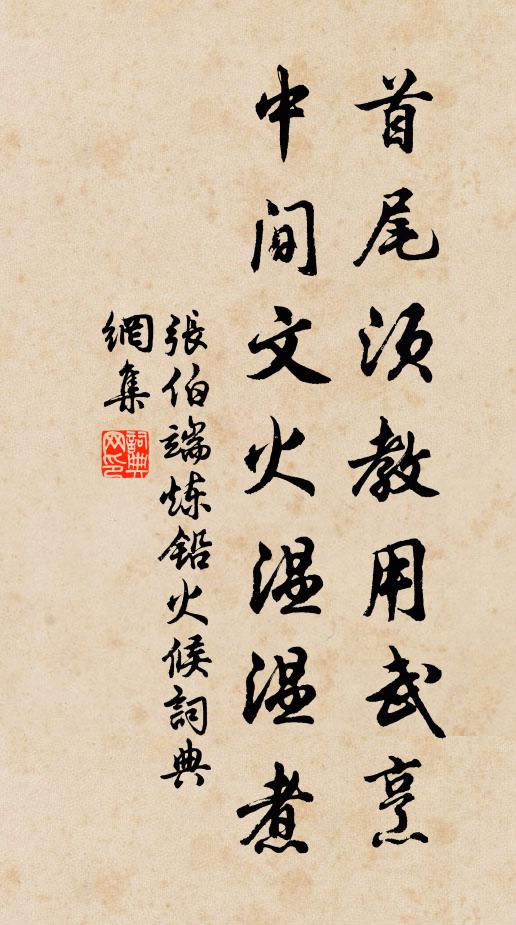 首尾須教用武烹
中間文火温温煮
張伯端煉鉛火候詞典
網集
詞典
网印